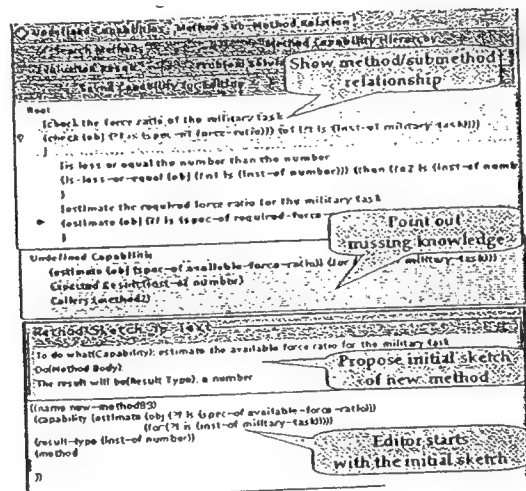 Undefined Capabilities Method Sub-Method Relation
Search Method Method Capability Hierarchy
Show method/submethod
relationship
Root
[check the force ratio of the military task
(check (obj (?f is (spec-of force-ratio))) (of (?t is (inst-of military-task))))
]
[is less or equal the number than the number
(is-less-or-equal (obj (?n1 is (inst-of number))) (then (?n2 is (inst-of numb
]
[estimate the required force ratio for the military task
(estimate (obj (?f is (spec-of required-force
]
Point out
missing knowledge
Undefined Capabilities
(estimate (obj (spec-of available-force-ratio)) (for military-task)))
Expected Result:(inst-of number)
Callers:(method2)
Method Sketch In Text
To do what(Capability): estimate the available force ratio for the military task
Do(Method Body):
The result will be(Result Type): a number
Propose initial sketch
of new method
((name new-method89)
(capability (estimate (obj (?f is (spec-of available-force-ratio)))
(for (?t is (inst-of military-task)))))
(result-type (inst-of number))
(method
))
Editor starts
with the initial sketch